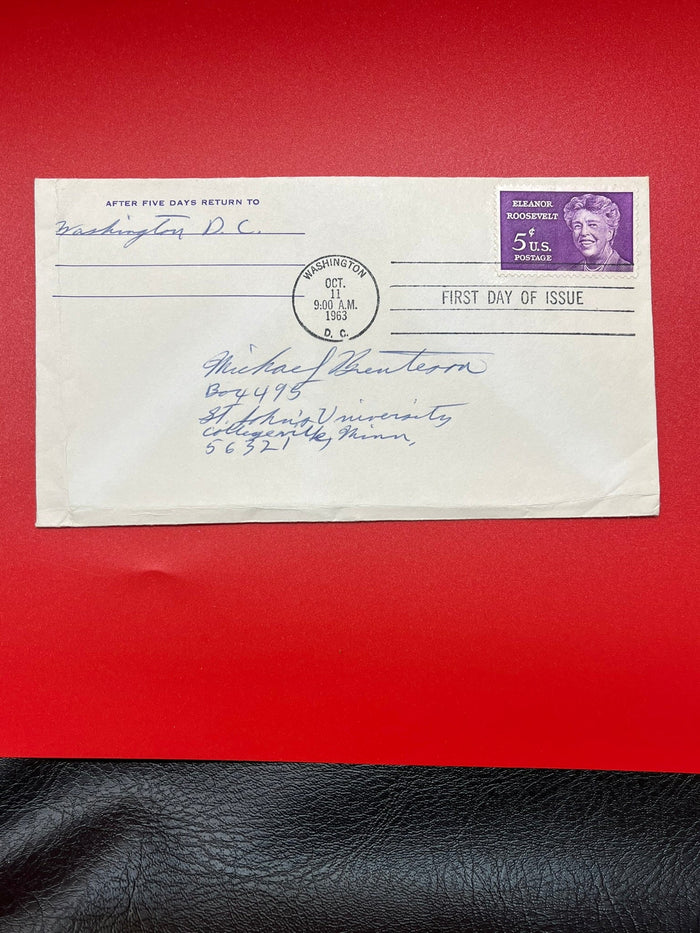 AFTER FIVE DAYS RETURN TO
Washington D. C.
ELEANOR
ROOSEVELT
5¢ U.S.
POSTAGE
WASHINGTON
OCT.
11
9:00 A.M.
1963
D. C.
FIRST DAY OF ISSUE
Michael
Box 495
St. John's University
Collegeville, Minn,
56321